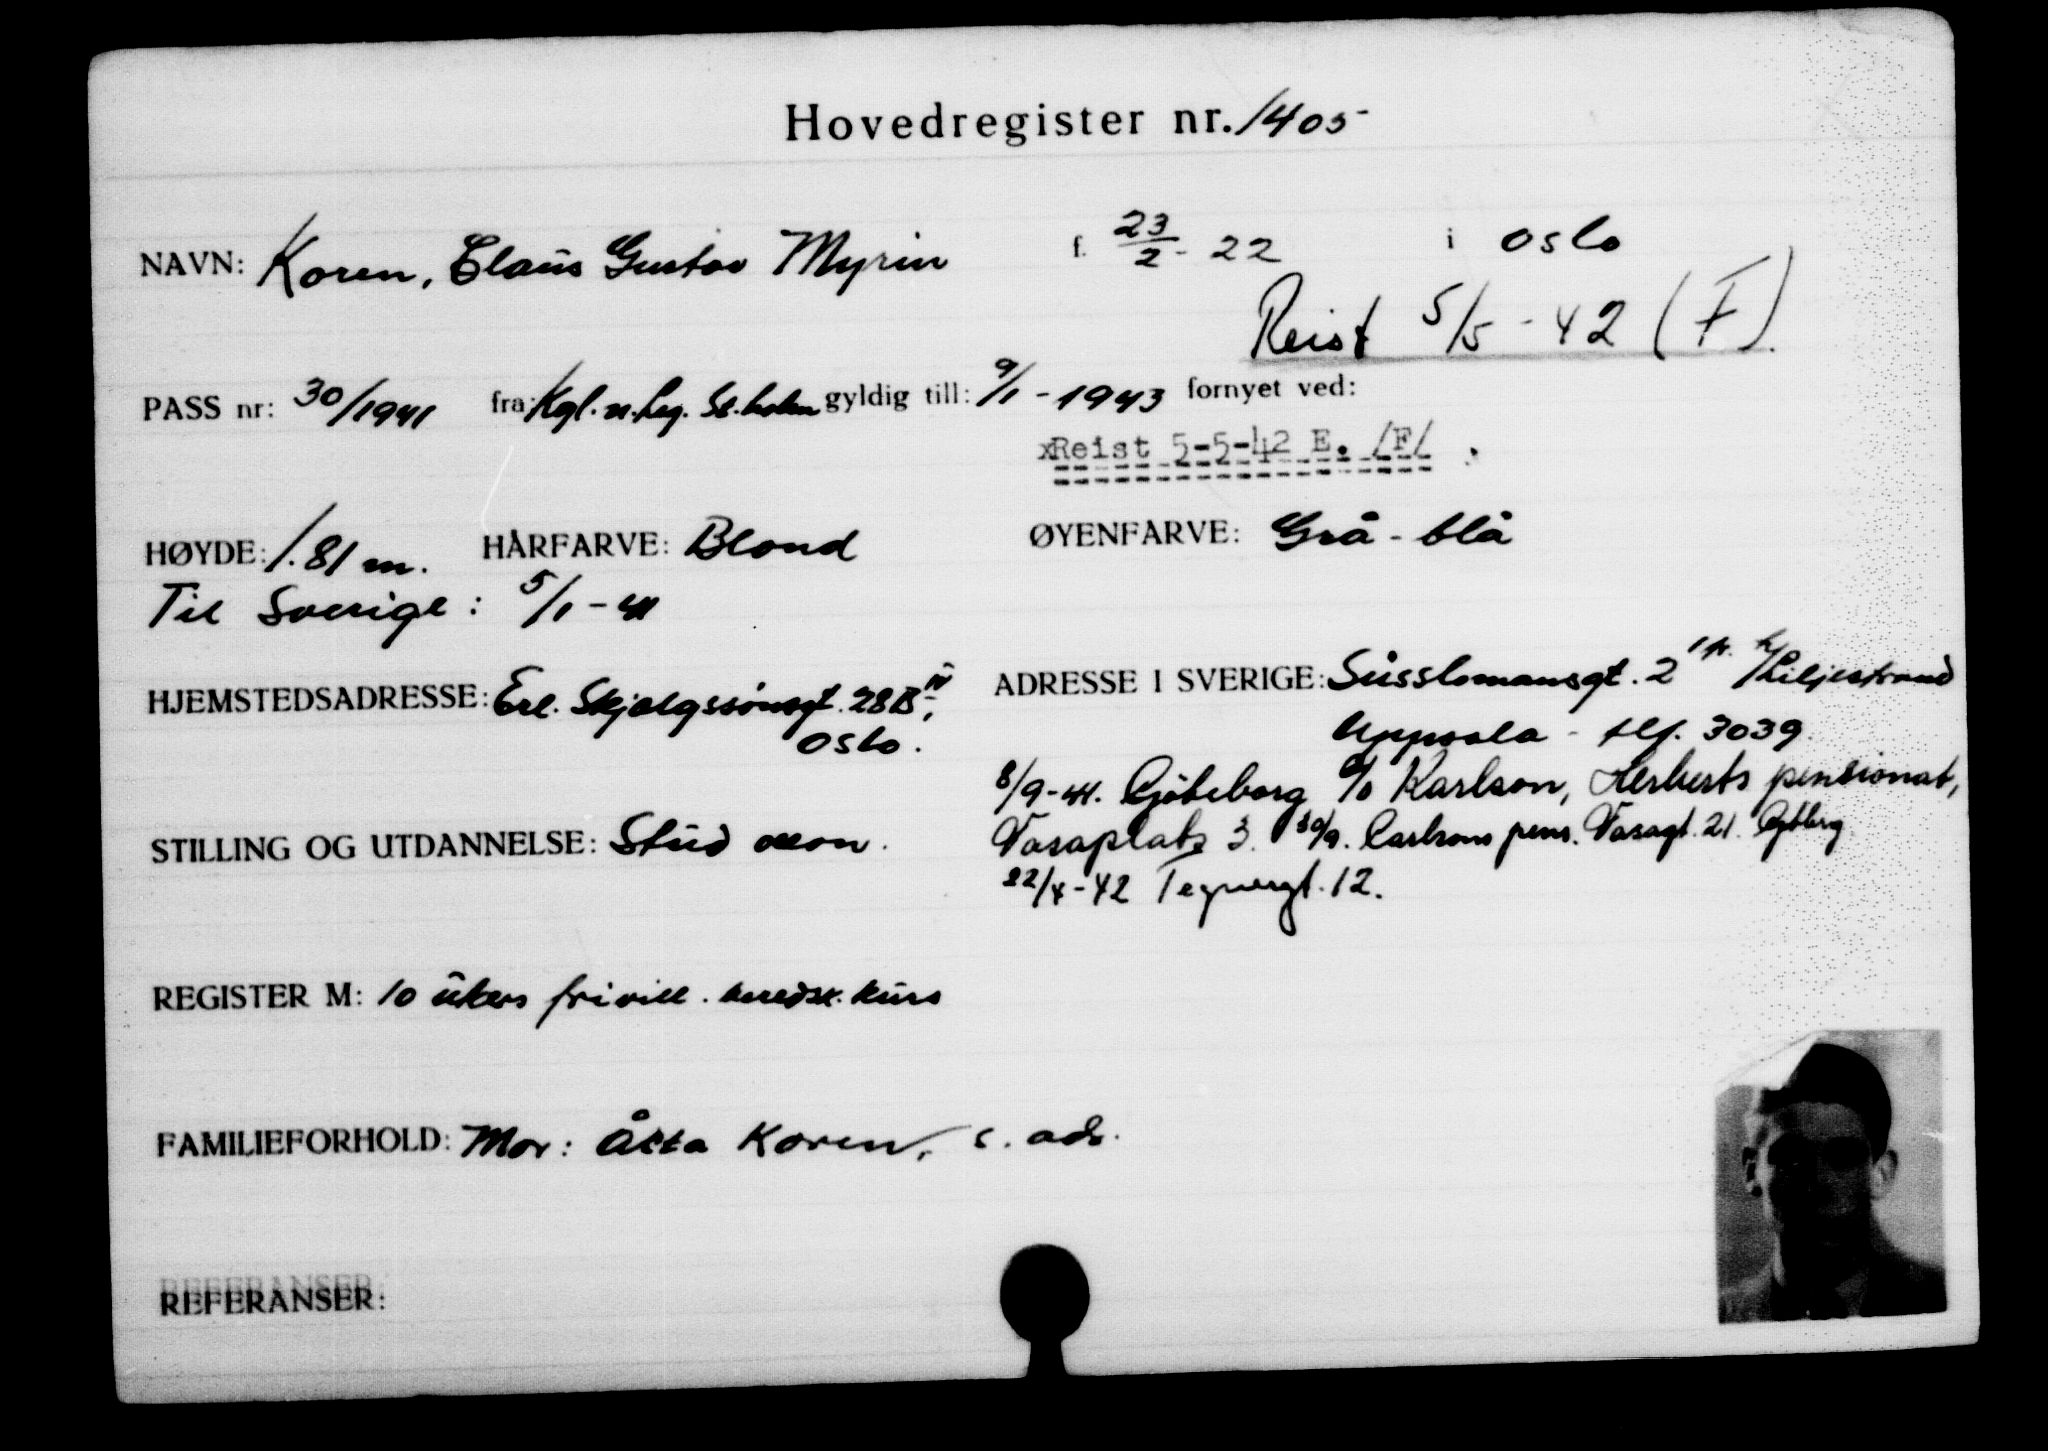 Hovedregister nr. 1405
NAVN: Koren, Claus Gustav Myrin f. 23/2 - 22 i Oslo
Reist 5/5 - 42 (F).
PASS nr: 30/1941 fra: Kgl. n. Leg. St.holm gyldig till: 9/1 - 1943 fornyet ved:
xReist 5-5-42 E. /F/ .
HØYDE: 1.81 m. HÅRFARVE: Blond ØYENFARVE: Grå - blå
Til Sverige: 5/1 - 41
HJEMSTEDSADRESSE: Erl. Skjalgssønsgt. 28B IV,
Oslo.
ADRESSE I SVERIGE: Süsslomansgt. 2 1 tr. h/Liljestrand
Uppsala - tlf. 3039.
8/9-41. Gjöteborg c/o Karlson, Herberts pensionat,
Vasaplats 3. 30/9. Carlsons pens. Vasagt. 21. Gjtbrg
22/4-42 Tegnergt. 12.
STILLING OG UTDANNELSE: Stud oecon.
REGISTER M: 10 ukers frivill. beredsk. kurs
FAMILIEFORHOLD: Mor: Åsta Koren, s. adr.
REFERANSER: